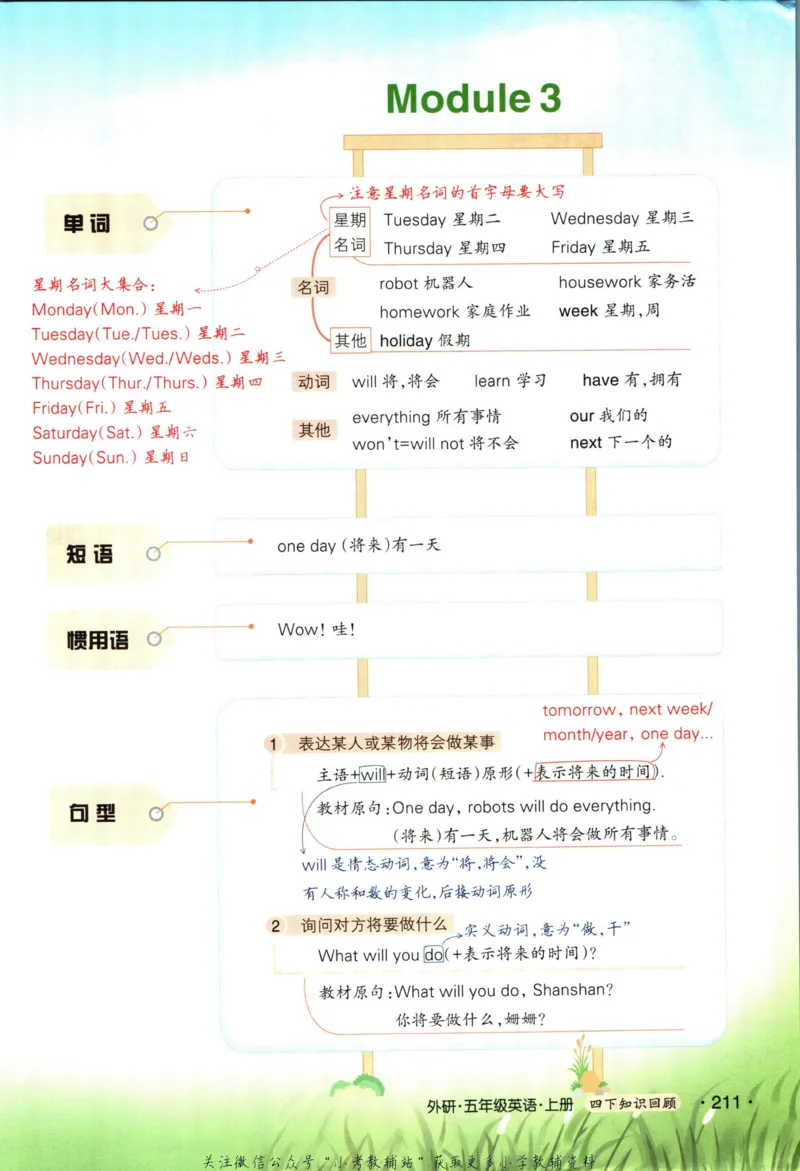 Module 3
单词
注意星期名词的首字母要大写
星期名词
Tuesday 星期二 Wednesday 星期三
Thursday 星期四 Friday 星期五
名词
robot 机器人 housework 家务活
homework 家庭作业 week 星期,周
其他 holiday 假期
动词 will 将,将会 learn 学习 have 有,拥有
其他
everything 所有事情 our 我们的
won't=will not 将不会 next 下一个的
星期名词大集合:
Monday(Mon.) 星期一
Tuesday(Tue./Tues.) 星期二
Wednesday(Wed./Weds.) 星期三
Thursday(Thur./Thurs.) 星期四
Friday(Fri.) 星期五
Saturday(Sat.) 星期六
Sunday(Sun.) 星期日
短语
one day (将来)有一天
惯用语
Wow! 哇!
句型
tomorrow, next week/
month/year, one day...
1 表达某人或某物将会做某事
主语+will+动词(短语)原形(+表示将来的时间).
教材原句:One day, robots will do everything.
(将来)有一天,机器人将会做所有事情。
will 是情态动词,意为“将,将会”,没
有人称和数的变化,后接动词原形
2 询问对方将要做什么
实义动词,意为“做,干”
What will you do(+表示将来的时间)?
教材原句:What will you do, Shanshan?
你将要做什么,姗姗?
外研·五年级英语·上册 四下知识回顾 ·211·
关注微信公众号“小考教辅站”获取更多小学教辅资料